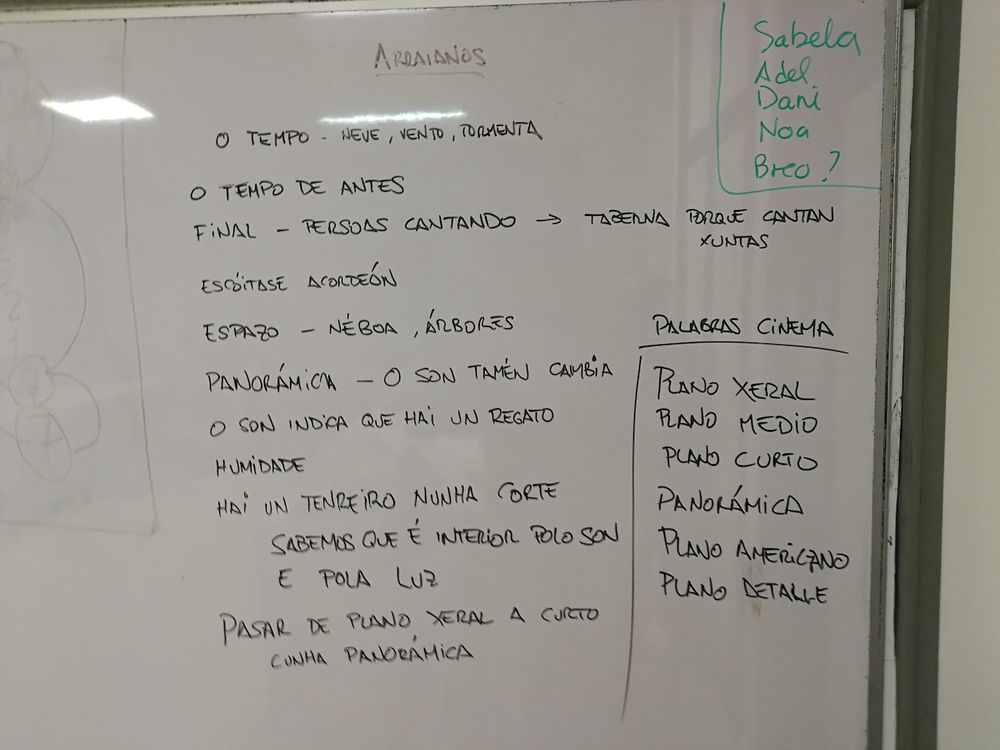 ARRAIANOS
O TEMPO - NEVE, VENTO, TORMENTA
O TEMPO DE ANTES
FINAL - PERSOAS CANTANDO → TABERNA PORQUE CANTAN
XUNTAS
ESCÓITASE ACORDEÓN
ESPAZO - NÉBOA, ÁRBORES
PANORÁMICA - O SON TAMÉN CAMBIA
O SON INDICA QUE HAI UN REGATO
HUMIDADE
HAI UN TENREIRO NUNHA CORTE
SABEMOS QUE É INTERIOR POLO SON
E POLA LUZ
PASAR DE PLANO XERAL A CURTO
CUNHA PANORÁMICA
Sabela
Adel
Dani
Noa
Breo?
PALABRAS CINEMA
PLANO XERAL
PLANO MEDIO
PLANO CURTO
PANORÁMICA
PLANO AMERICANO
PLANO DETALLE